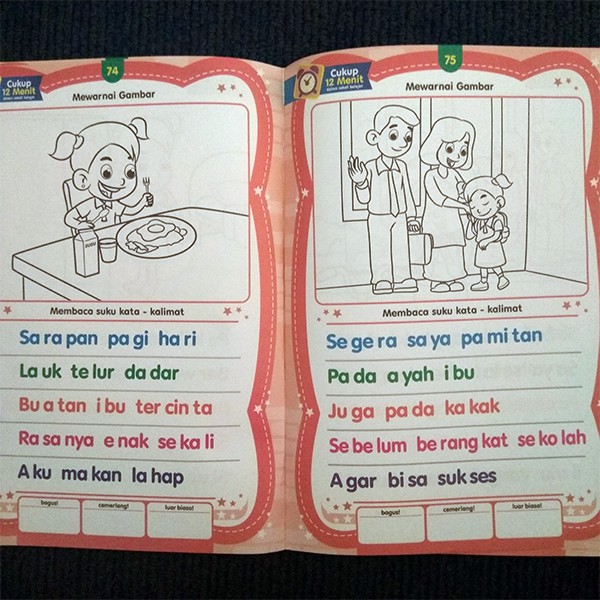 74
Cukup
12 Menit
Mewarnai Gambar
SUSU
Membaca suku kata - kalimat
Sa ra pan pa gi ha ri
La uk te lur da dar
Bu a tan i bu ter cin ta
Ra sa nya e nak se ka li
A ku ma kan la hap
bagus!
cemerlang!
luar biasa!
75
Cukup
12 Menit
Mewarnai Gambar
Membaca suku kata - kalimat
Se ge ra sa ya pa mi tan
Pa da a yah i bu
Ju ga pa da ka kak
Se be lum be rang kat se ko lah
A gar bi sa suk ses
bagus!
cemerlang!
luar biasa!